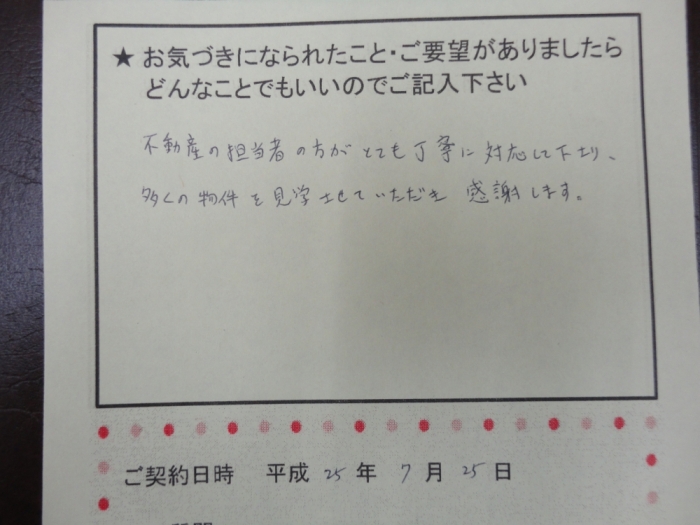 ★ お気づきになられたこと・ご要望がありましたら
どんなことでもいいのでご記入下さい
不動産の担当者の方がとても丁寧に対応して下さり、
多くの物件を見学させていただき 感謝します。
ご契約日時 平成 25 年 7 月 25 日